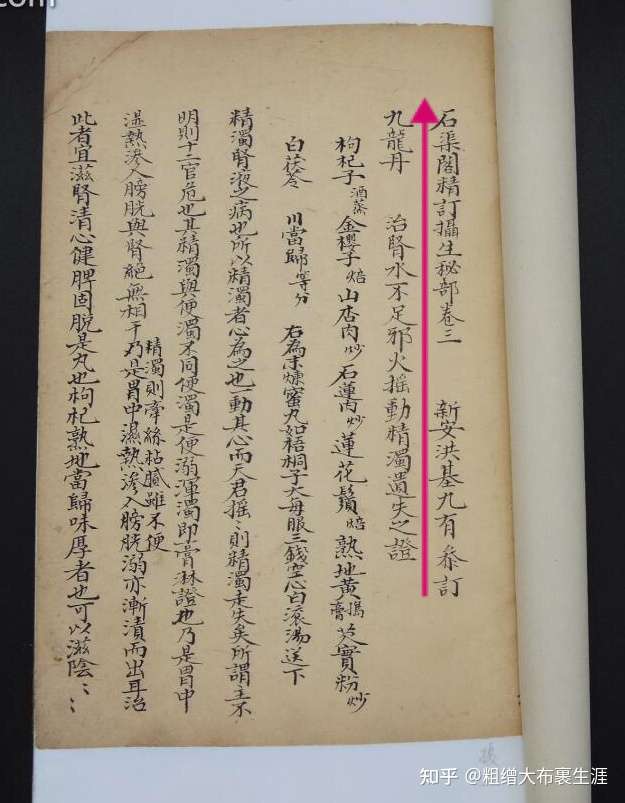 石渠閣精訂攝生秘部卷三　新安洪基九有　叅訂
九龍丹　治腎水不足邪火摇動精濁遺失之證
枸杞子酒蒸金櫻子焙山查肉炒石蓮肉炒蓮花鬚焙熟地黄搗膏芡實粉炒
白茯苓　川當歸等分　右為末煉蜜丸如梧桐子大每服三錢空心白滾湯送下
精濁腎液之病也所以精濁者心為之也一動其心而天君摇〻則精濁走失矣所謂主不
明則十二官危也其精濁與便濁不同便濁是便溺渾濁即膏淋證也乃是胃中
湿熱滲入膀胱與腎絕無相干精濁則牽絲粘膩雖不便乃是胃中濕熱滲入膀胱溺亦漸漬而出耳治
此者宜滋腎清心健脾固脱是丸也枸杞熟地當歸味厚者也可以滋陰〻〻
com
知乎 @粗缯大布裹生涯